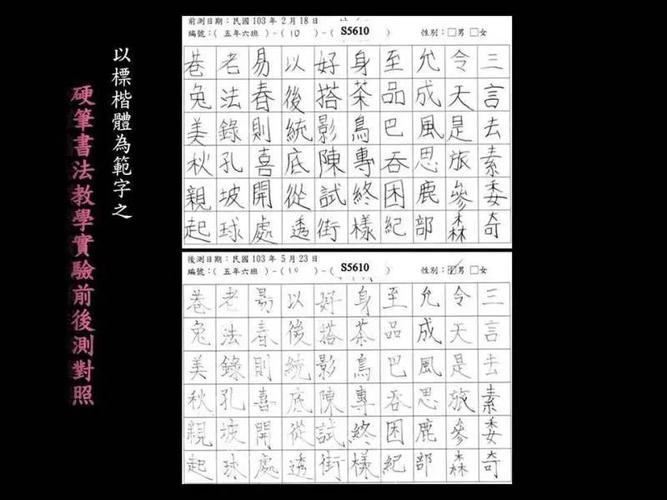 以標楷體為範字之
硬筆書法教學實驗前後測對照
前測日期：民國 103 年 2 月 18 日
編號：( 五年六班 )－( 10 )－( S5610 性別：□男 □女
巷老易以好身至允令三
兔法春後搭茶品成天言
美錄則統影鳥巴風是去
秋孔喜底陳專吞思旅素
親坡開從試終困鹿參委
起球處透街樣紀部森奇
後測日期：民國 103 年 5 月 23 日
編號：( 五年六班 )－( 10 )－( S5610 性別：☑男 □女
巷老易以好身至允令三
兔法春後搭茶品成天言
美錄則統影鳥巴風是去
秋孔喜底陳專吞思旅素
親坡開從試終困鹿參委
起球處透街樣紀部森奇